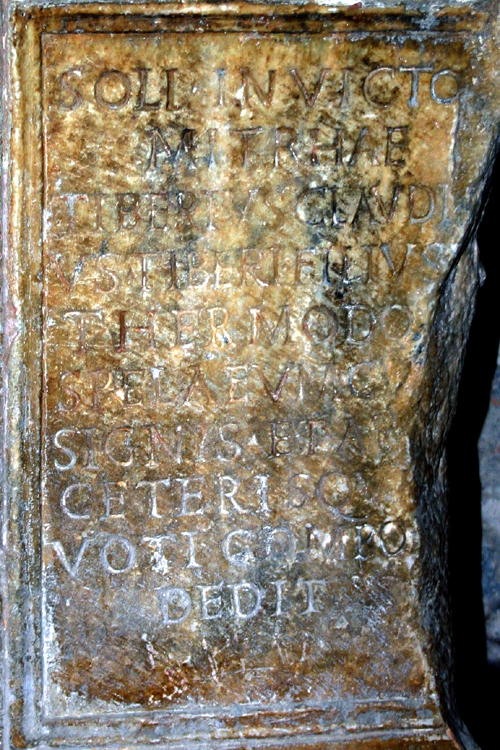 SOLI · INVICTO
MITRHAE
TIBERIVS CLAVDI
VS · TIBERI FILIVS
THERMODO
SPELAEVM CV
SIGNIS · ET AR
CETERISQV
VOTI COMPO
DEDIT